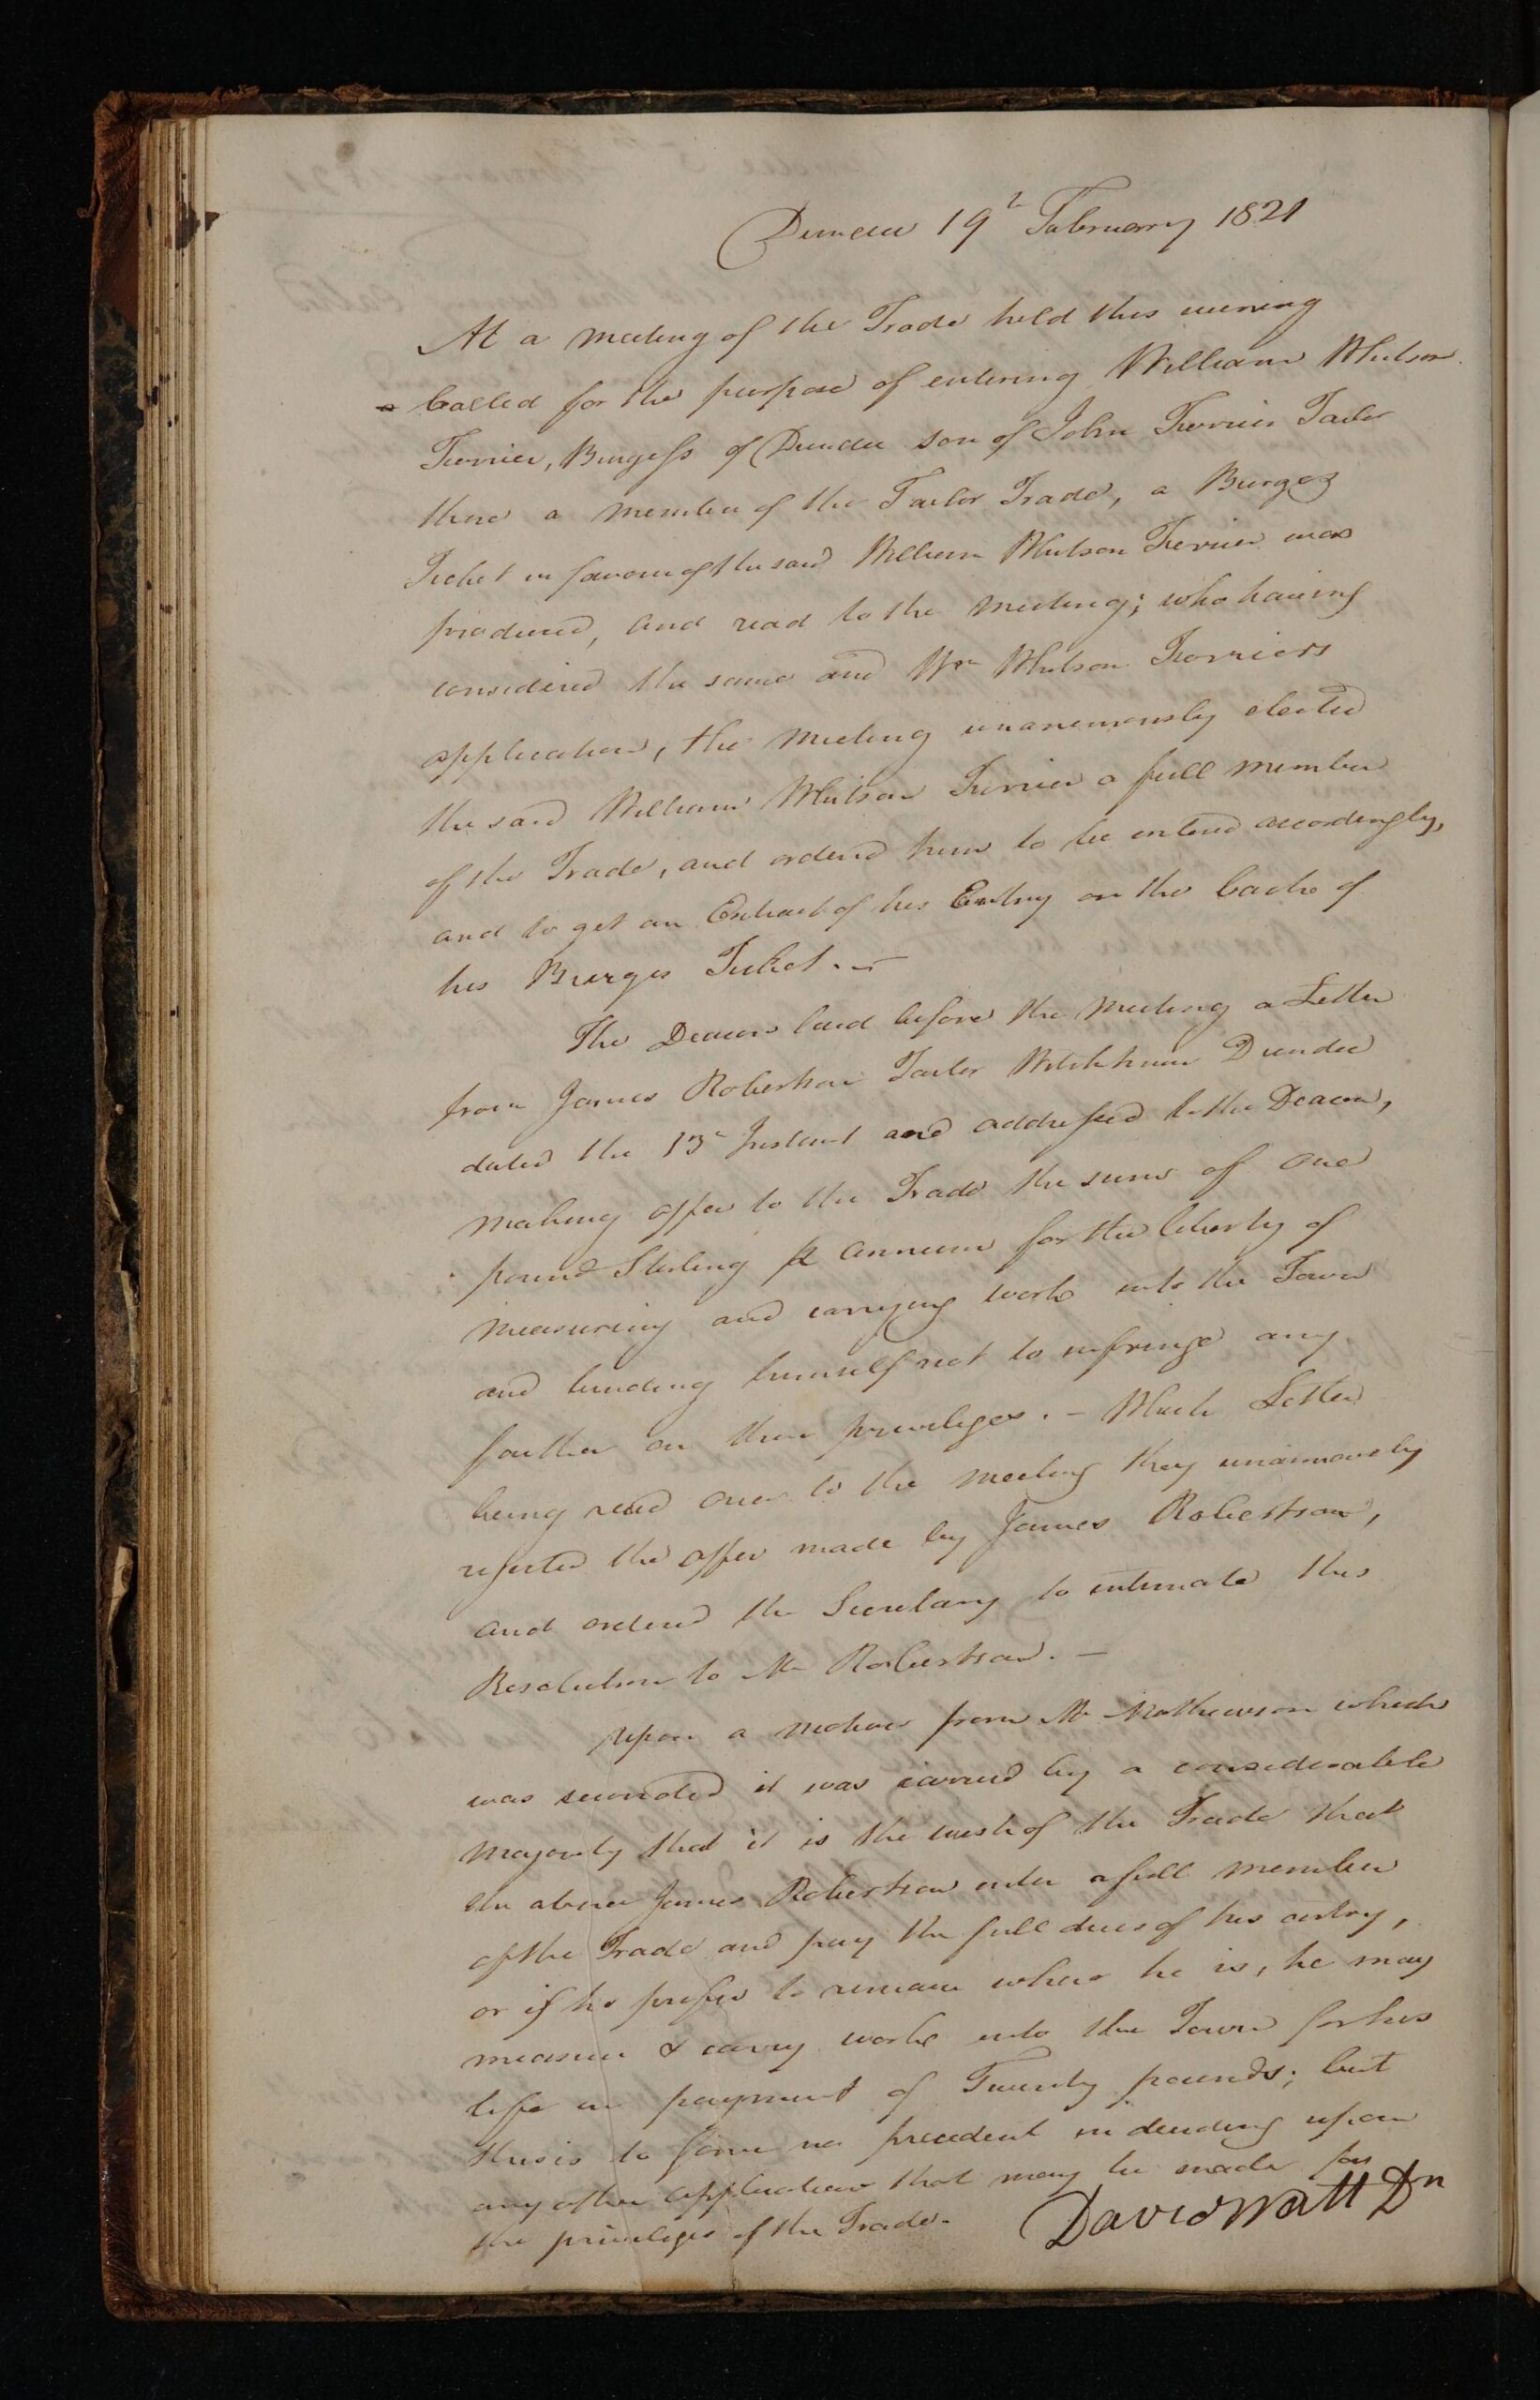 Dundee 19th February 1821
At a meeting of the Trade held this evening
called for the purpose of entering William Whitson
Ferrier, Burgess of Dundee son of John Ferrier Tailor
there a member of the Tailor Trade, a Burges
Ticket in favour of the said William Whitson Ferrier was
produced, and read to the meeting; who having
considered the same and Wm Whitson Ferriers
application, the meeting unanimously elected
the said William Whitson Ferrier a full member
of the Trade, and ordered him to be entered accordingly,
and to get an Extract of his Entry on the back of
his Burges Ticket.
The Deacon laid before the meeting a Letter
from James Robertson Tailor Dundee
dated the 13th Instant and addressed to the Deacon,
making offer to the Trade the sum of one
pound Sterling p annum for the liberty of
measuring and carrying work into the Town
and binding himself not to infringe any
farther on their privileges. – Which Letter
being read over to the meeting they unanimously
rejected the offer made by James Robertson,
and ordered the Secretary to intimate this
Resolution to Mr Robertson. –
Upon a motion from Mr Mathewson which
was seconded it was carried by a considerable
majority that it is the wish of the Trade that
the above James Robertson enter a full member
of the Trade and pay the full dues of his entry,
or if he prefer to remain where he is, he may
measure & carry work into the Town for his
life on payment of Twenty pounds; but
this is to form no precedent in deciding upon
any other application that may be made for
the privileges of the Trade.
David Watt Dn